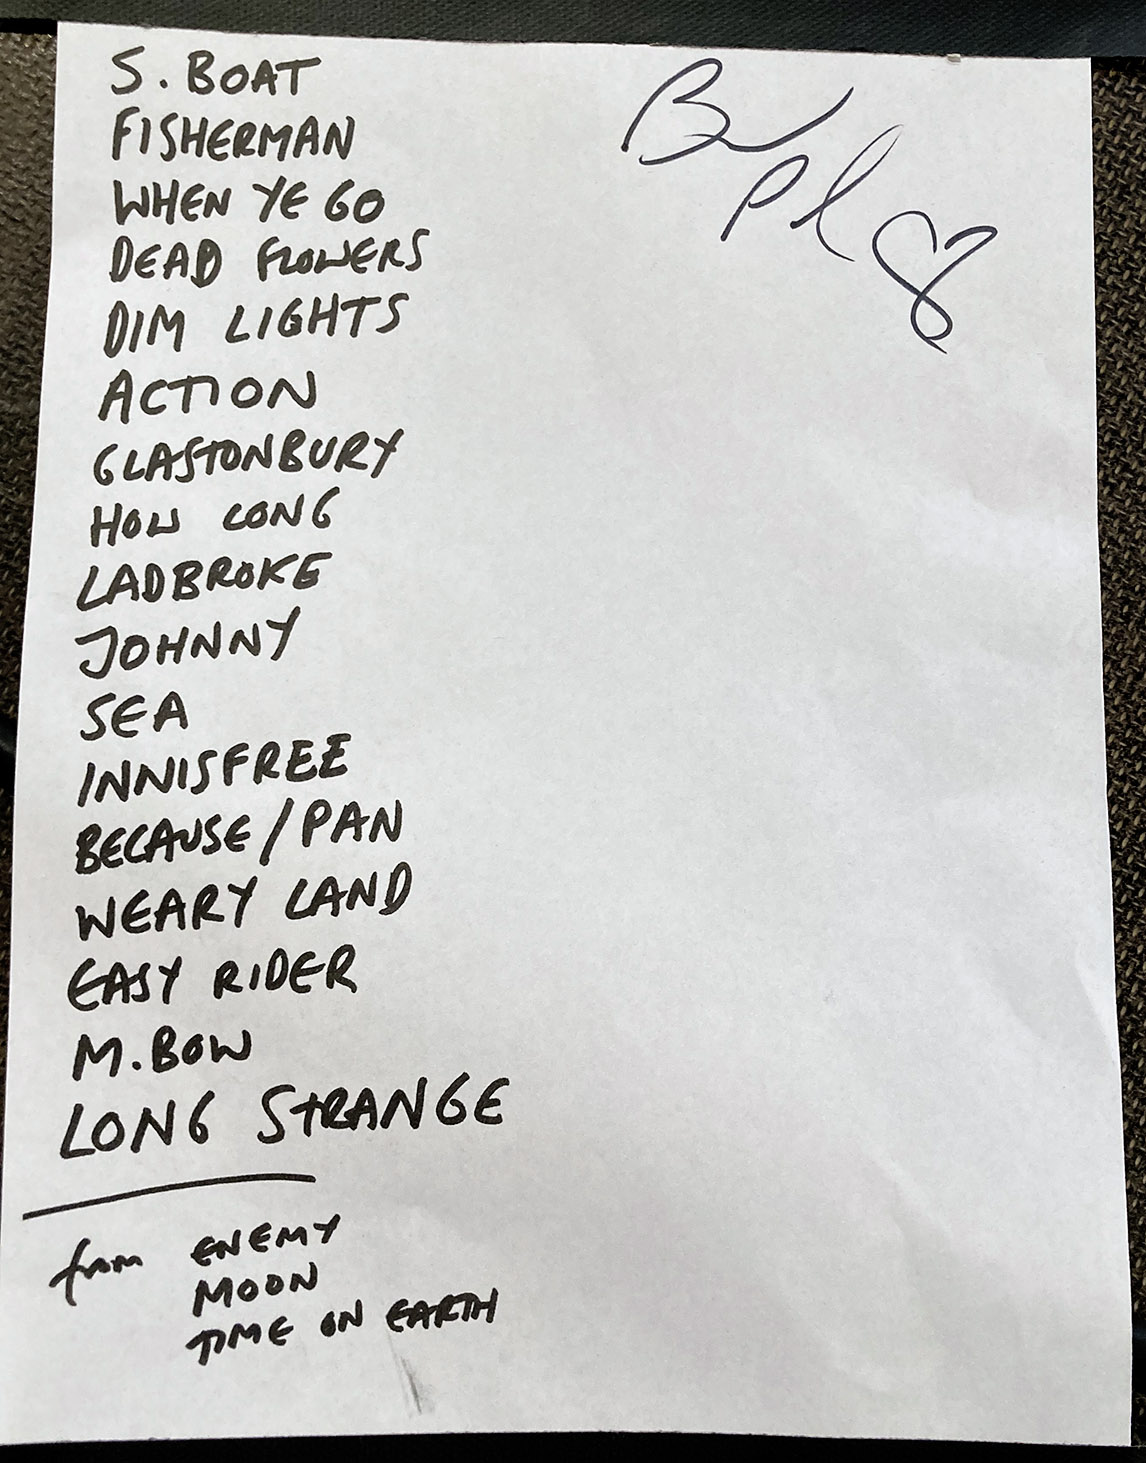 S. BOAT
FISHERMAN
WHEN YE GO
DEAD FLOWERS
DIM LIGHTS
ACTION
GLASTONBURY
HOW LONG
LADBROKE
JOHNNY
SEA
INNISFREE
BECAUSE/PAN
WEARY LAND
EASY RIDER
M. BOW
LONG STRANGE
from ENEMY
MOON
TIME ON EARTH